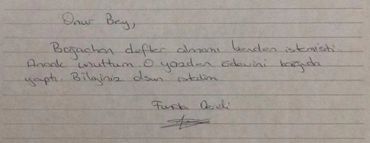 Onur Bey,
Boğaçhan defter almamı benden istemişti.
Ancak unuttum. O yüzden ödevini kağıda
yaptı. Bilginiz olsun istedim.